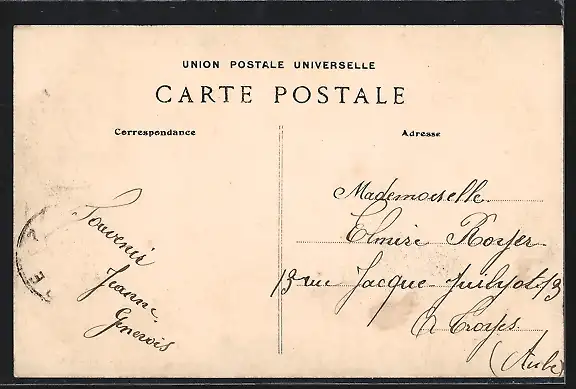 UNION POSTALE UNIVERSELLE
CARTE POSTALE
Correspondance
Adresse
Souvenir
Jeanne
Mademoiselle
Elmire Royer
13 rue Jacque Juilyot 13
A Troyes
(Aube)